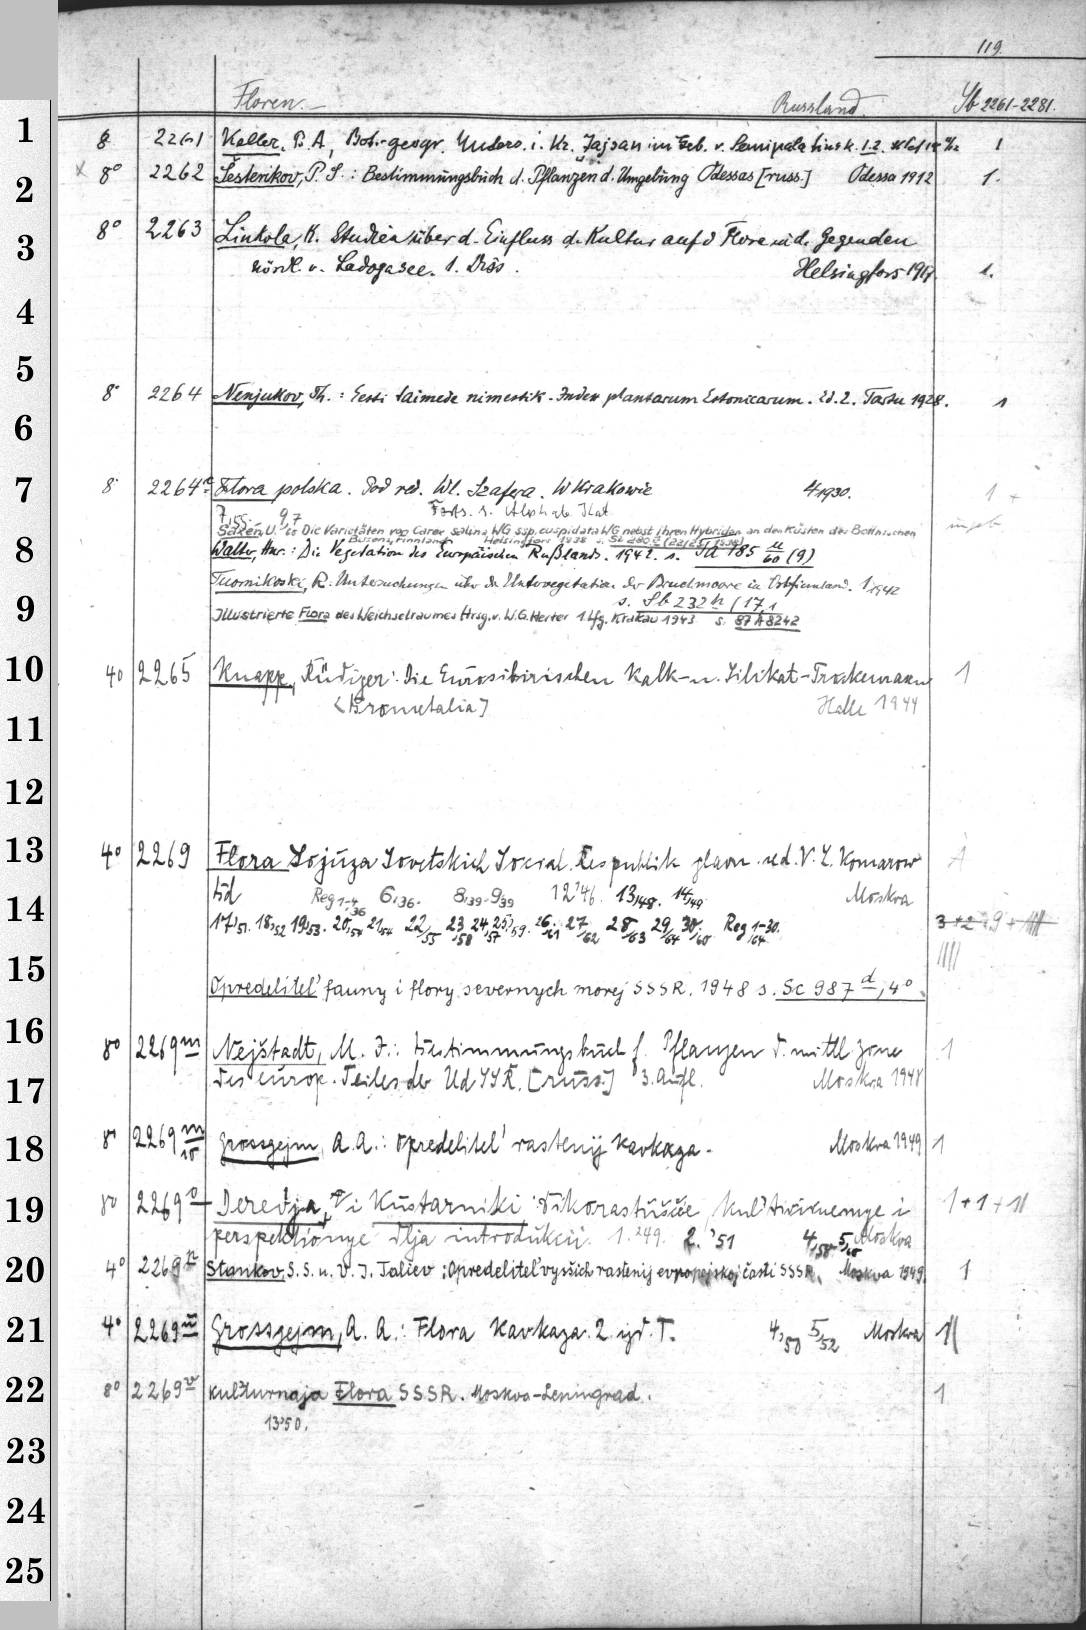 119.
Floren. Russland. Sb 2261-2281.
8 2261 Keller, B. A., Bot.-geogr. Unters. i. Kr. Zajsan im Geb. v. Semipalatinsk. 1.2. 1
8° 2262 Šesterikov, P. S.: Bestimmungsbuch d. Pflanzen d. Umgebung Odessas [russ.] Odessa 1912 1.
8° 2263 Linkola, K. Studien über d. Einfluss d. Kultur auf d Flora in d. Gegenden
nördl. v. Ladogasee. 1. Diss. Helsingfors 1916. 1.
8° 2264 Nenjukov, Th.: Eesti taimede nimestik. Index plantarum Estonicarum. Ed. 2. Tartu 1928. 1
8° 2264a Flora polska. Pod red. Wł. Szafera. W Krakowie 4,1930. 1 +
Forts. s. Alphab. Kat
Saxén, U. Die Varietäten von Carex salina WG ssp. cuspidata WG nebst ihren Hybriden an den Küsten des Bottnischen
Busens, Finnland. Helsingfors 1938
Walter, Hnr.: Die Vegetation des Europäischen Rußlands. 1942. s. Td 785 u/60 (9)
Tuornikoski, R. Untersuchungen über die Untervegetation der Bruchmoore in Ostfinnland. 1 1942
s. Sb 232h (17,1
Illustrierte Flora des Weichselraumes Hrsg. v. W.G. Herter 1 Lfg. Krakau 1943 s. 87 A 8242
40 2265 Knapp, Rüdiger: Die Eurosibirischen Kalk- u. Silikat-Trockenrasen 1
<Brometalia] Halle 1944
4° 2269 Flora Sojuza Sovetskich Social. Respublik glavn. red. V. L. Komarow
Reg 1-4/36 6,36. 8,39-9/39 12'46. 13/48. 14/49 Moskva
17/51. 18/52 19/53. 20/54 21/54 22/55 23/58 24/57 25/59. 26/61 27/62 28/63 29/64 30/60 Reg 1-30./64
Opredelitel' fauny i flory severnych morej SSSR. 1948 s. Sc 987 d, 4°.
8° 2269m Nejštadt, M. I.: Bestimmungsbuch f. Pflanzen d. mittl Zone 1
des europ. Teiles der UdSSR. [russ.] 3. Aufl. Moskva 1948
8° 2269m/15 Grossgejm, A. A.: Opredelitel' rastenij Kavkaza. Moskva 1949 1
8° 2269o Derevja i Kustarniki dikorastuščie, kul'tiviruemye i 1+1+1
perspektivnye dlja introdukcii. 1.'49. 2.'51 4/58 5/60 Moskva
4° 2269r Stankov, S. S. u. V. I. Taliev: Opredelitel' vysšich rastenij evropejskoj časti SSSR. Moskva 1949. 1
4° 2269u Grossgejm, A. A.: Flora Kavkaza. 2. izd. T. 4,50 5/52 Moskva 1
8° 2269v Kul'turnaja Flora SSSR. Moskva-Leningrad. 1
13'50.
1
2
3
4
5
6
7
8
9
10
11
12
13
14
15
16
17
18
19
20
21
22
23
24
25